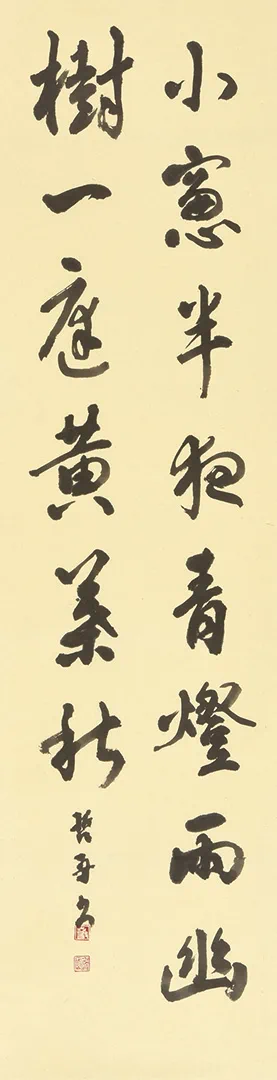 小窓半夜青燈雨幽
樹一庭黄葉秋